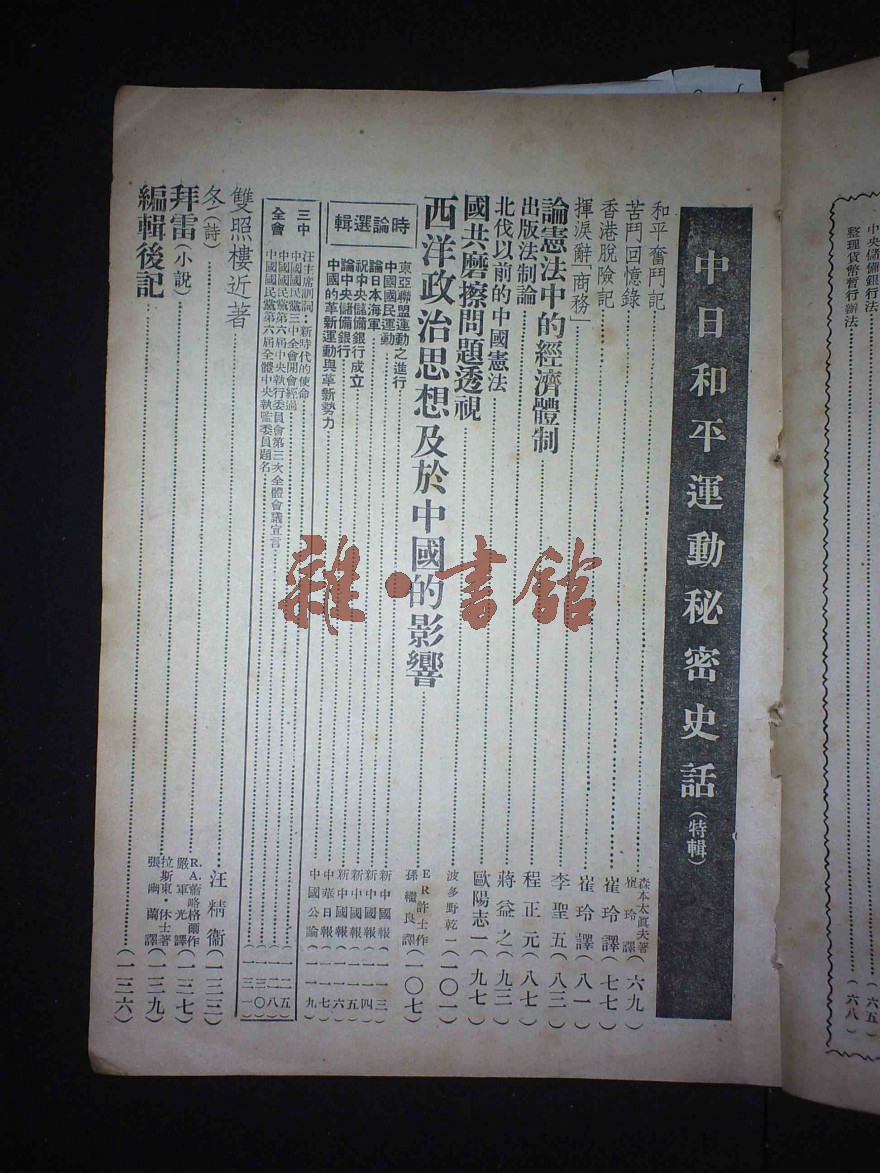 中央儲備銀行法……(六五)
整理貨幣暫行辦法……(六八)
中日和平運動秘密史話(特輯)
和平奮鬥記……森本太眞夫著 崔玲譯(六九)
苦鬥回憶錄……崔玲譯(七七)
香港脫險記……崔玲譯(八一)
揮淚辭「商務」……李聖五(八三)
論憲法中的經濟體制……程正元(八七)
出版法制論……蔣益之(九三)
北伐以前的中國憲法……歐陽志一(九七)
國共磨擦問題透視……波多野乾一(一〇一)
西洋政治思想及於中國的影響……ER許士作 孫繼良譯(一〇七)
時論選輯
東亞聯盟運動之進行……新中國報(一一三)
中國國民運動……新中國報(一一四)
論日本海軍……新中國報(一一五)
祝中央儲備銀行成立……新中國報(一一六)
論中央儲備銀行……中華日報(一一七)
中國的革新運動與革新勢力……中國公論(一一九)
三中全會
汪主席訓詞:新時代的使命……(一二五)
中國國民黨三中全會開會經過……(一二八)
中國國民黨第六屆中央執行委員會第三次全體會議宣言……(一三〇)
中國國民黨第六屆全體中央執監委員題名……(一三一)
雙照樓近著……汪精衞(一三三)
冬(詩)……R.A.蕭略格爾作 嚴軍光譯(一三七)
拜雷(小說)……拉斯東·休士著 張幽蘭譯(一三九)
編輯後記……(一三六)
雜·書館